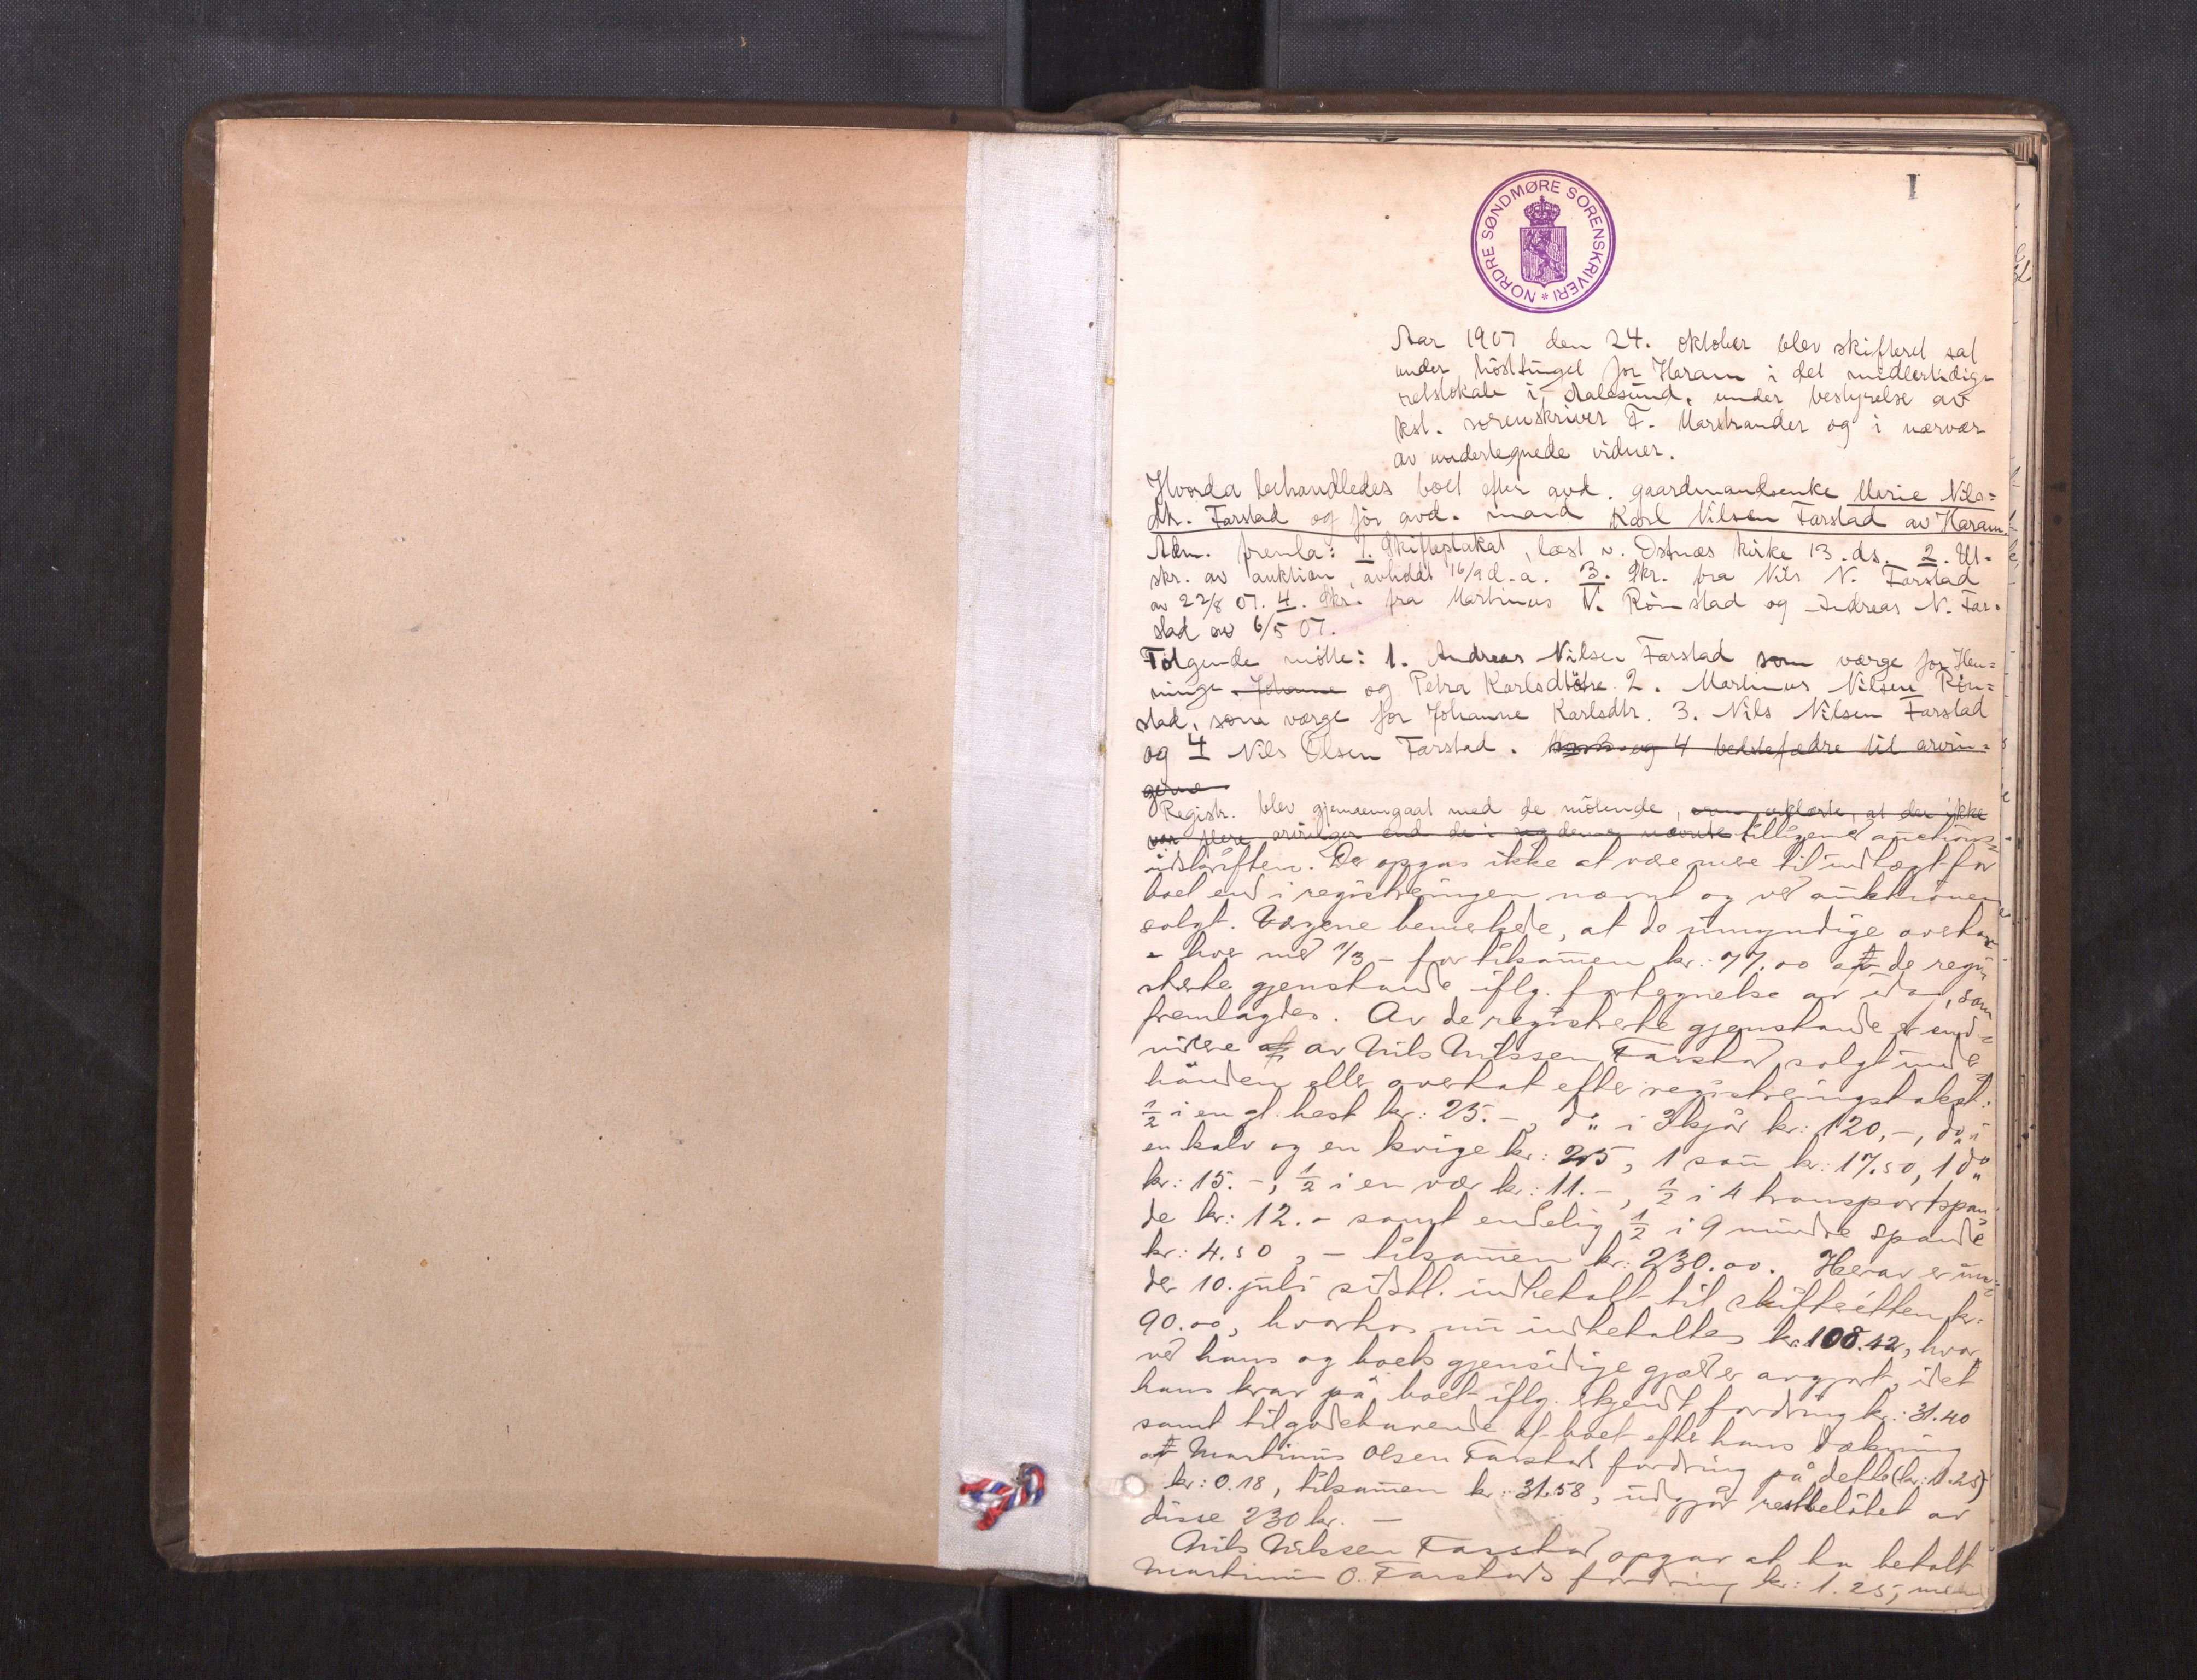 I
NORDRE SØNDMØRE SORENSKRIVERI *
Aar 1907 den 24. oktober blev skifteret sat
under hösttinget for Haram i det midlertidige
retslokale i Aalesund, under bestyrelse av
kst. sorenskriver F. Marstrander og i nærvær
av undertegnede vidner.
Hvorda behandledes boet efter avd. gaardmandsenke Marie Nils=
dtr. Farstad og før avd. mand Karl Nilsen Farstad av Haram.
Adm. fremla: 1. Skifteplakat, læst v. Østnæs kirke 13. ds. 2. Ut-
skr. av auktion, avholdt 16/9 d.a. 3. Skr. fra Nils N. Farstad
av 22/8 07. 4. Skr. fra Martinus N. Rönstad og Andreas N. Far-
stad av 6/5 07.
Følgende møtte: 1. Andreas Nilsen Farstad som værge for Hen=
ninge Johanne og Petra Karlsdtötre 2. Martinus Nilsen Rön=
stad, som værge for Johanne Karlsdtr. 3. Nils Nilsen Farstad
og 4 Nils Olsen Farstad. og 4 bedstefædre til arvin=
gerne.
Registr. blev gjennemgaat med de mötende, som erklærte, at der ikke
var flere arvinger end de i nævnte tilligemed auctions=
udskriften. Der opgas ikke at være mere til indtægt for
boet end i registreringen nævnt og ved auktionen
solgt. Værgene bemerkede, at de umyndige overtar
- hver med 1/3 - for tilsammen kr: 77.00 af de regi=
strerte gjenstande iflg. fortegnelse av idag, som
fremlagdes. Av de registrerte gjenstande er end=
videre av Nils Nilssen Farstad solgt under=
haanden eller overtat efter registreringstakst:
1/2 i en gl. hest kr: 25.-, do i 3 kjør kr: 120,-, do i
en kalv og en kvige kr: 25, 1 sau kr: 17.50, 1 do
kr: 15.-, 1/2 i en vær kr: 11.-, 1/2 i 4 transportspan=
de kr: 12.- samt endelig 1/2 i 9 mindre spande
kr: 4.50, - tilsammen kr: 230.00. Herav er un=
der 10. juli sidstl. indbetalt til skifteretten kr:
90.00, hvorhos nu indbetaltes kr: 108.42, hvor=
ved hans og boets gjensidige gjæld er avgjort, idet
hans krav på boet iflg. skjendt fordring kr: 31.40
samt tilgodehavende af boet efter hans dækning
af Martinus Olsen Farstads fordring på dette (kr: 1.25)
kr: 0.18, tilsammen kr: 31.58, udgjør restbeløbet av
disse 230 kr. -
Nils Nilssen Farstad opgav at ha betalt
Martinus O. Farstads fordring kr: 1.25, men